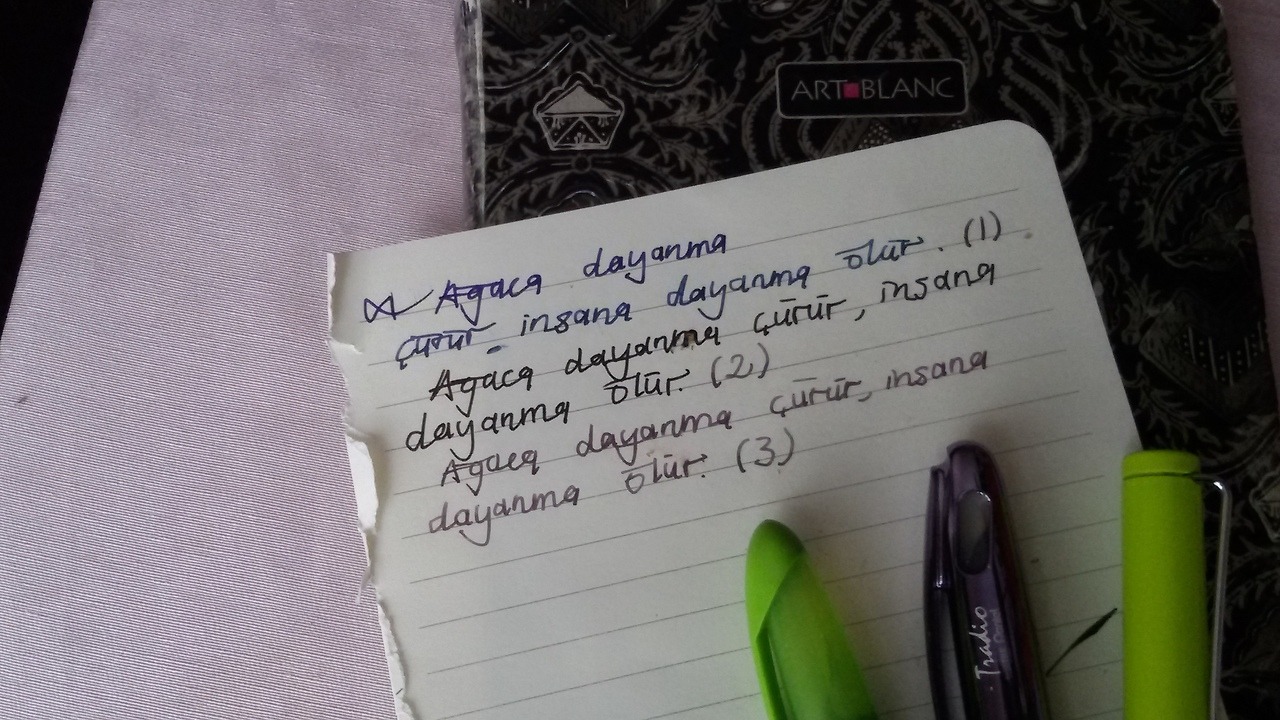 ART BLANC
Agaca dayanma
çürür. insana dayanma ölür. (1)
Agaca dayanma çürür, insana
dayanma ölür. (2)
Agaca dayanma çürür, insana
dayanma ölür. (3)
Tradio